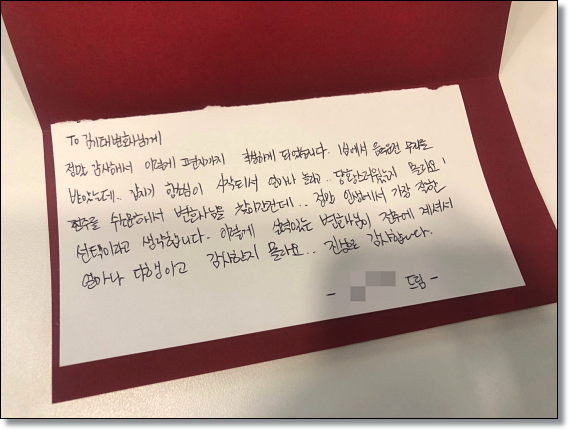 To 김기태변호사님께
정말 감사해서 이렇게 손편지까지 작성하게 되었습니다. 1심에서 음주운전 무죄를
받았는데.. 갑자기 항소심이 시작되서 얼마나 놀라고.. 당황스러웠는지 몰라요!
전주를 위주로해서 변호사님을 찾아간건데.. 정말 인생에서 가장 잘한
선택이라고 생각합니다. 이렇게 실력있는 변호사님이 전주에 계셔서
얼마나 다행이고 감사한지 몰라요.. 진심으로 감사합니다.
- 드림 -